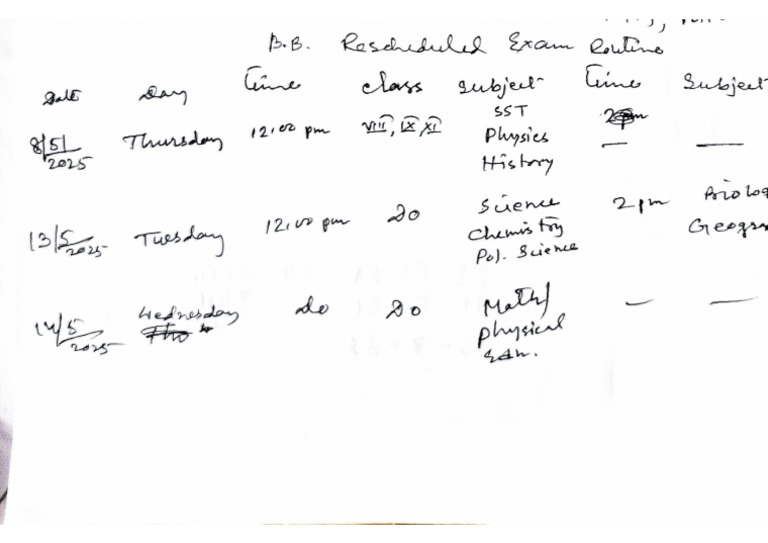 B.B. Rescheduled Exam Routine
Date Day Time Class Subject Time Subject
8/5/2025 Thursday 12:00 pm VIII, IX XI SST — —
Physics
History
13/5/2025 Tuesday 12:00 pm Do Science 2 pm Biolog
Chemistry Geogra
Pol. Science
14/5/2025 Wednesday do Do Math/ — —
physical
Edn.